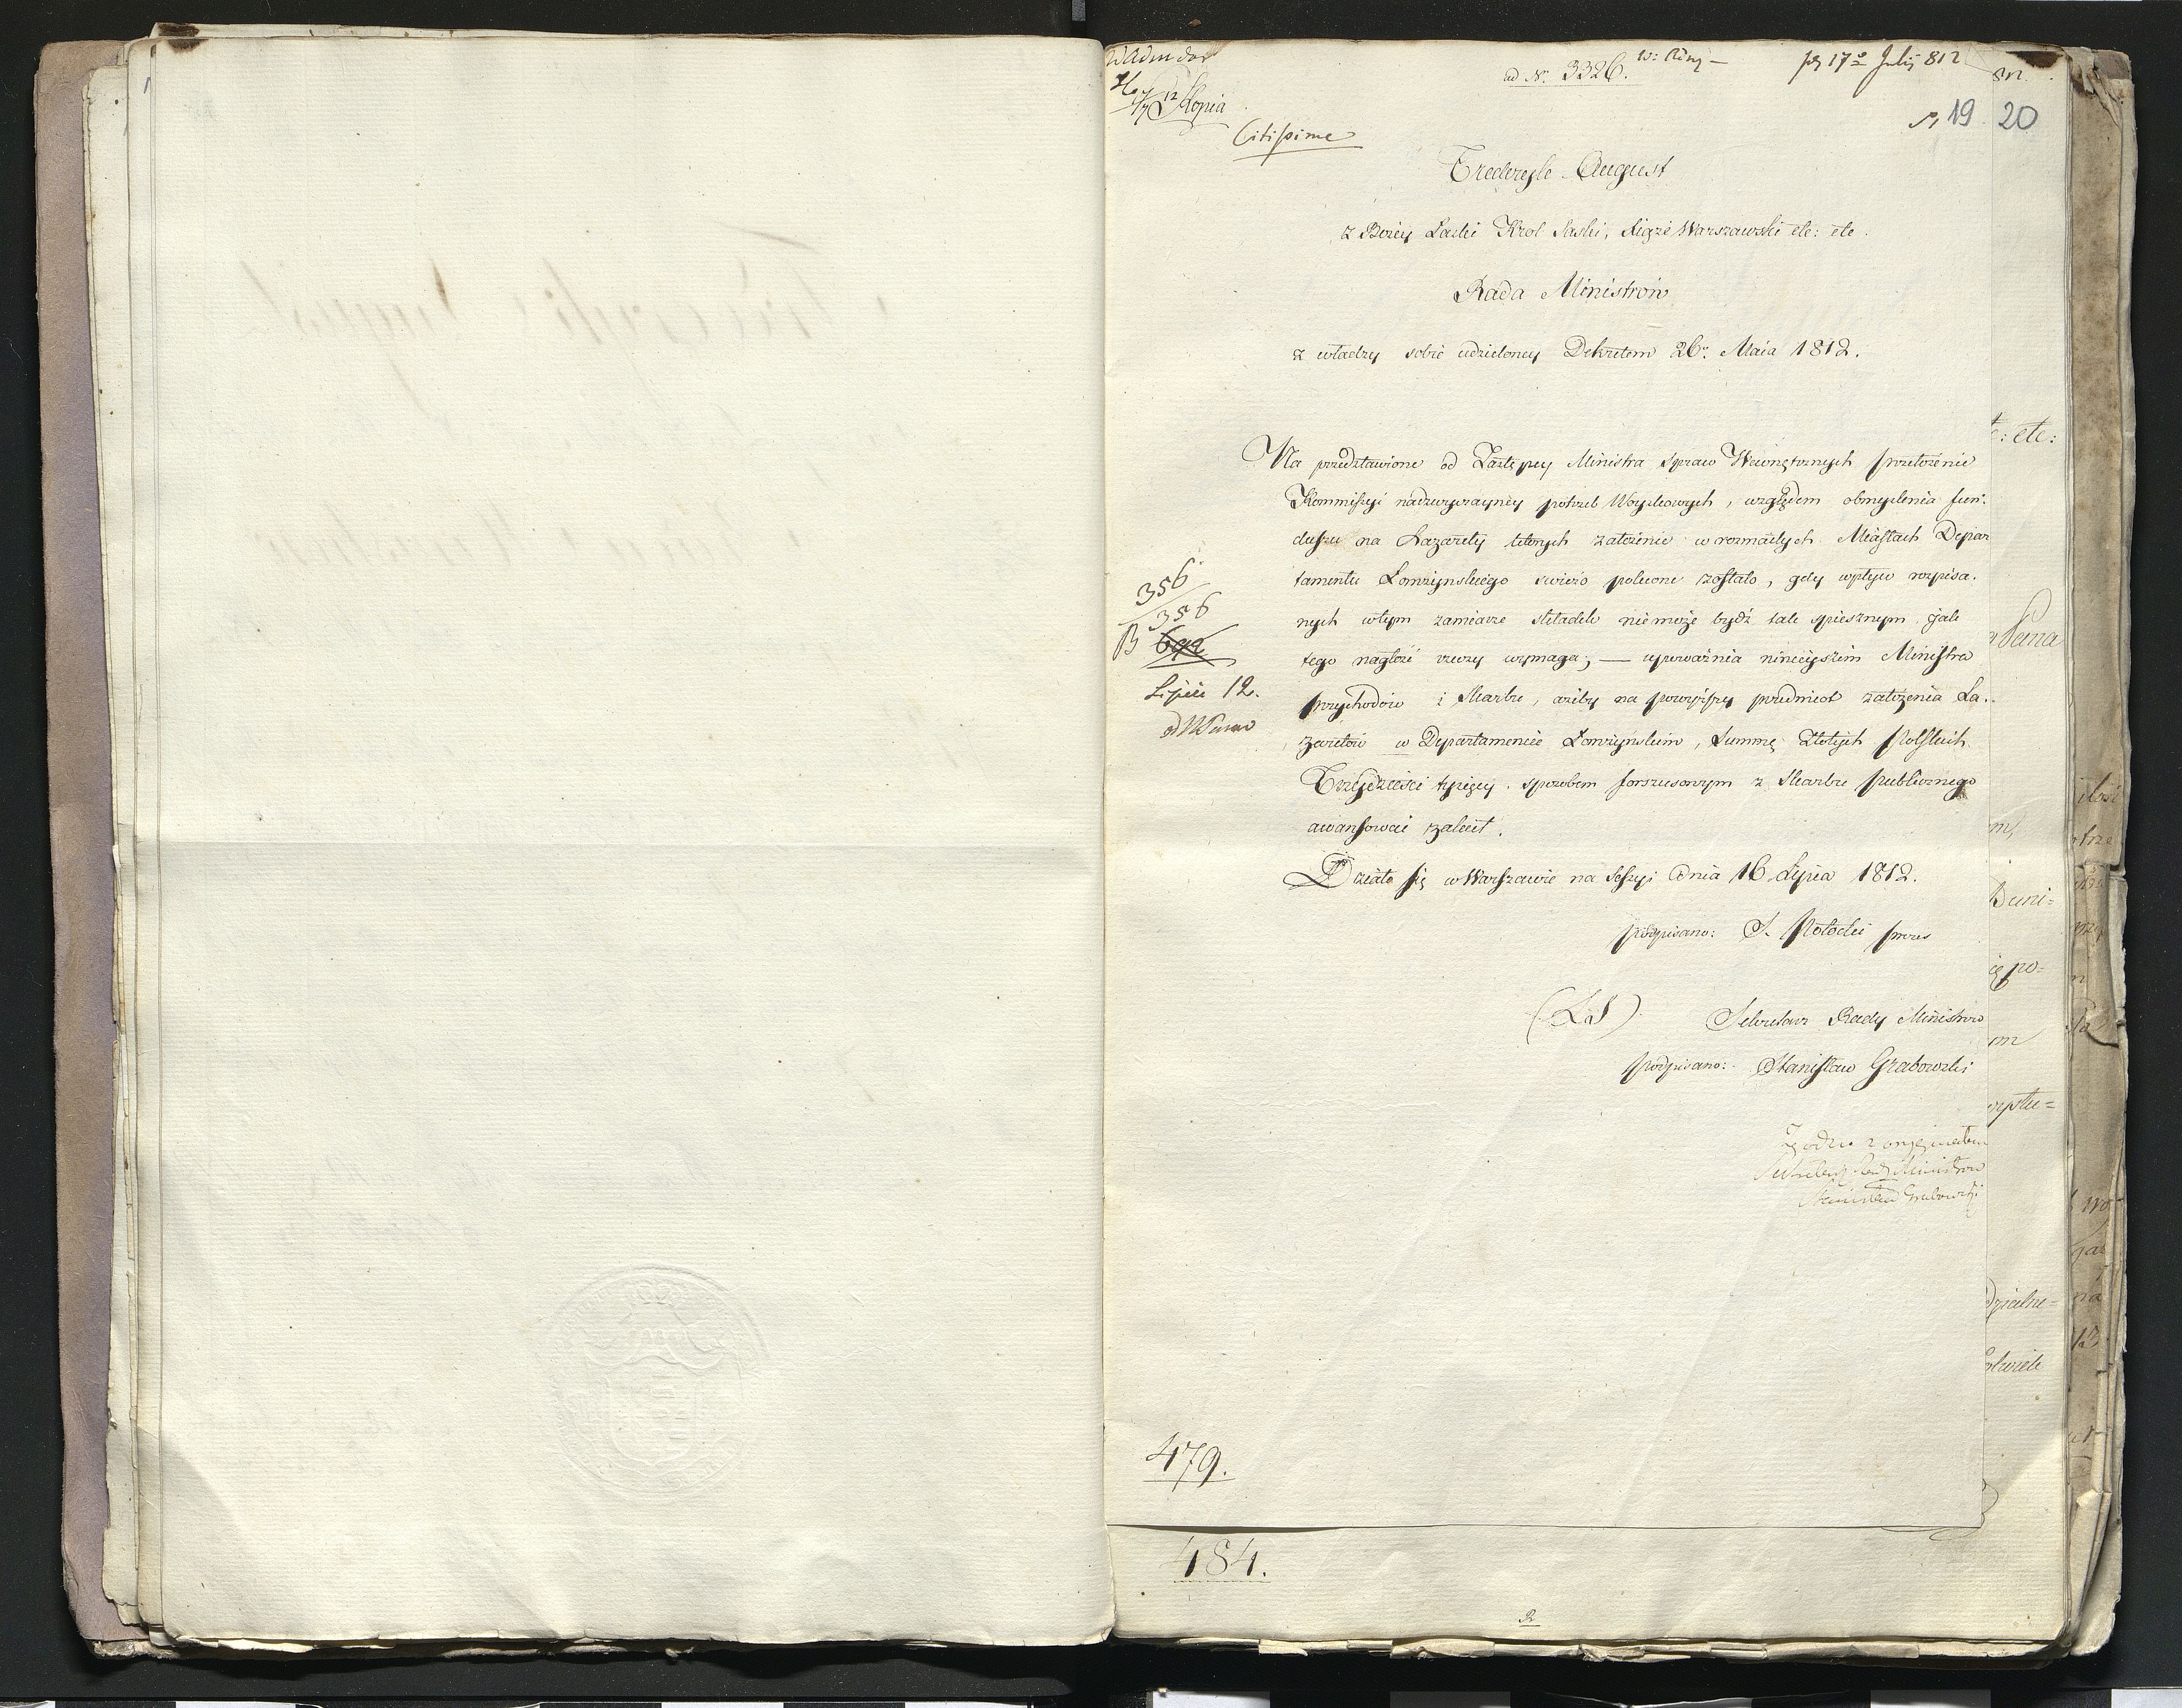 ad N. 3326.
17 Julij 812
Kopia
Citissime
19 20
Fryderyk August
z Bożey Łaski Krol Saski, Xiąże Warszawski etc: etc.
Rada Ministrow
z władzy sobie udzieloney Dekretem 26. Maia 1812.
Na przedstawione od Zastępcy Ministra Spraw Wewnętrznych przełożenie
Kommissyi nadzwyczayney potrzeb Woyskowych, względem obmyślenia fun-
duszu na Lazarety których założenie w rozmaitych Miastach Depar
tamentu Łomżynskiego swieżo polecone zostało, gdy wpływ rozpisa-
nych wtym zamiarze składek niemoże bydź tak spiesznym jak
tego nagłość rzeczy wymaga; — upoważnia ninieyszém Ministra
Przychodow i Skarbu, ażeby na powyższy przedmiot założenia La-
zaretow w Departamencie Łomżynskim, Summę Złotych Polskich
Trzydzieści tysięcy sposobem forszusowym z Skarbu publicznego
awansować zalecił.
Działo się w Warszawie na Sessyi dnia 16 Lipca 1812.
podpisano: S. Potocki prezes
(LS) Sekretarz Rady Ministrow
podpisano: Stanisław Grabowski
Zgodno z oryginałem
Sekretarz Rady Ministrow
Stanisław Grabowski
356
356
B 692
Lipiec 12.
479.
484.
etc: